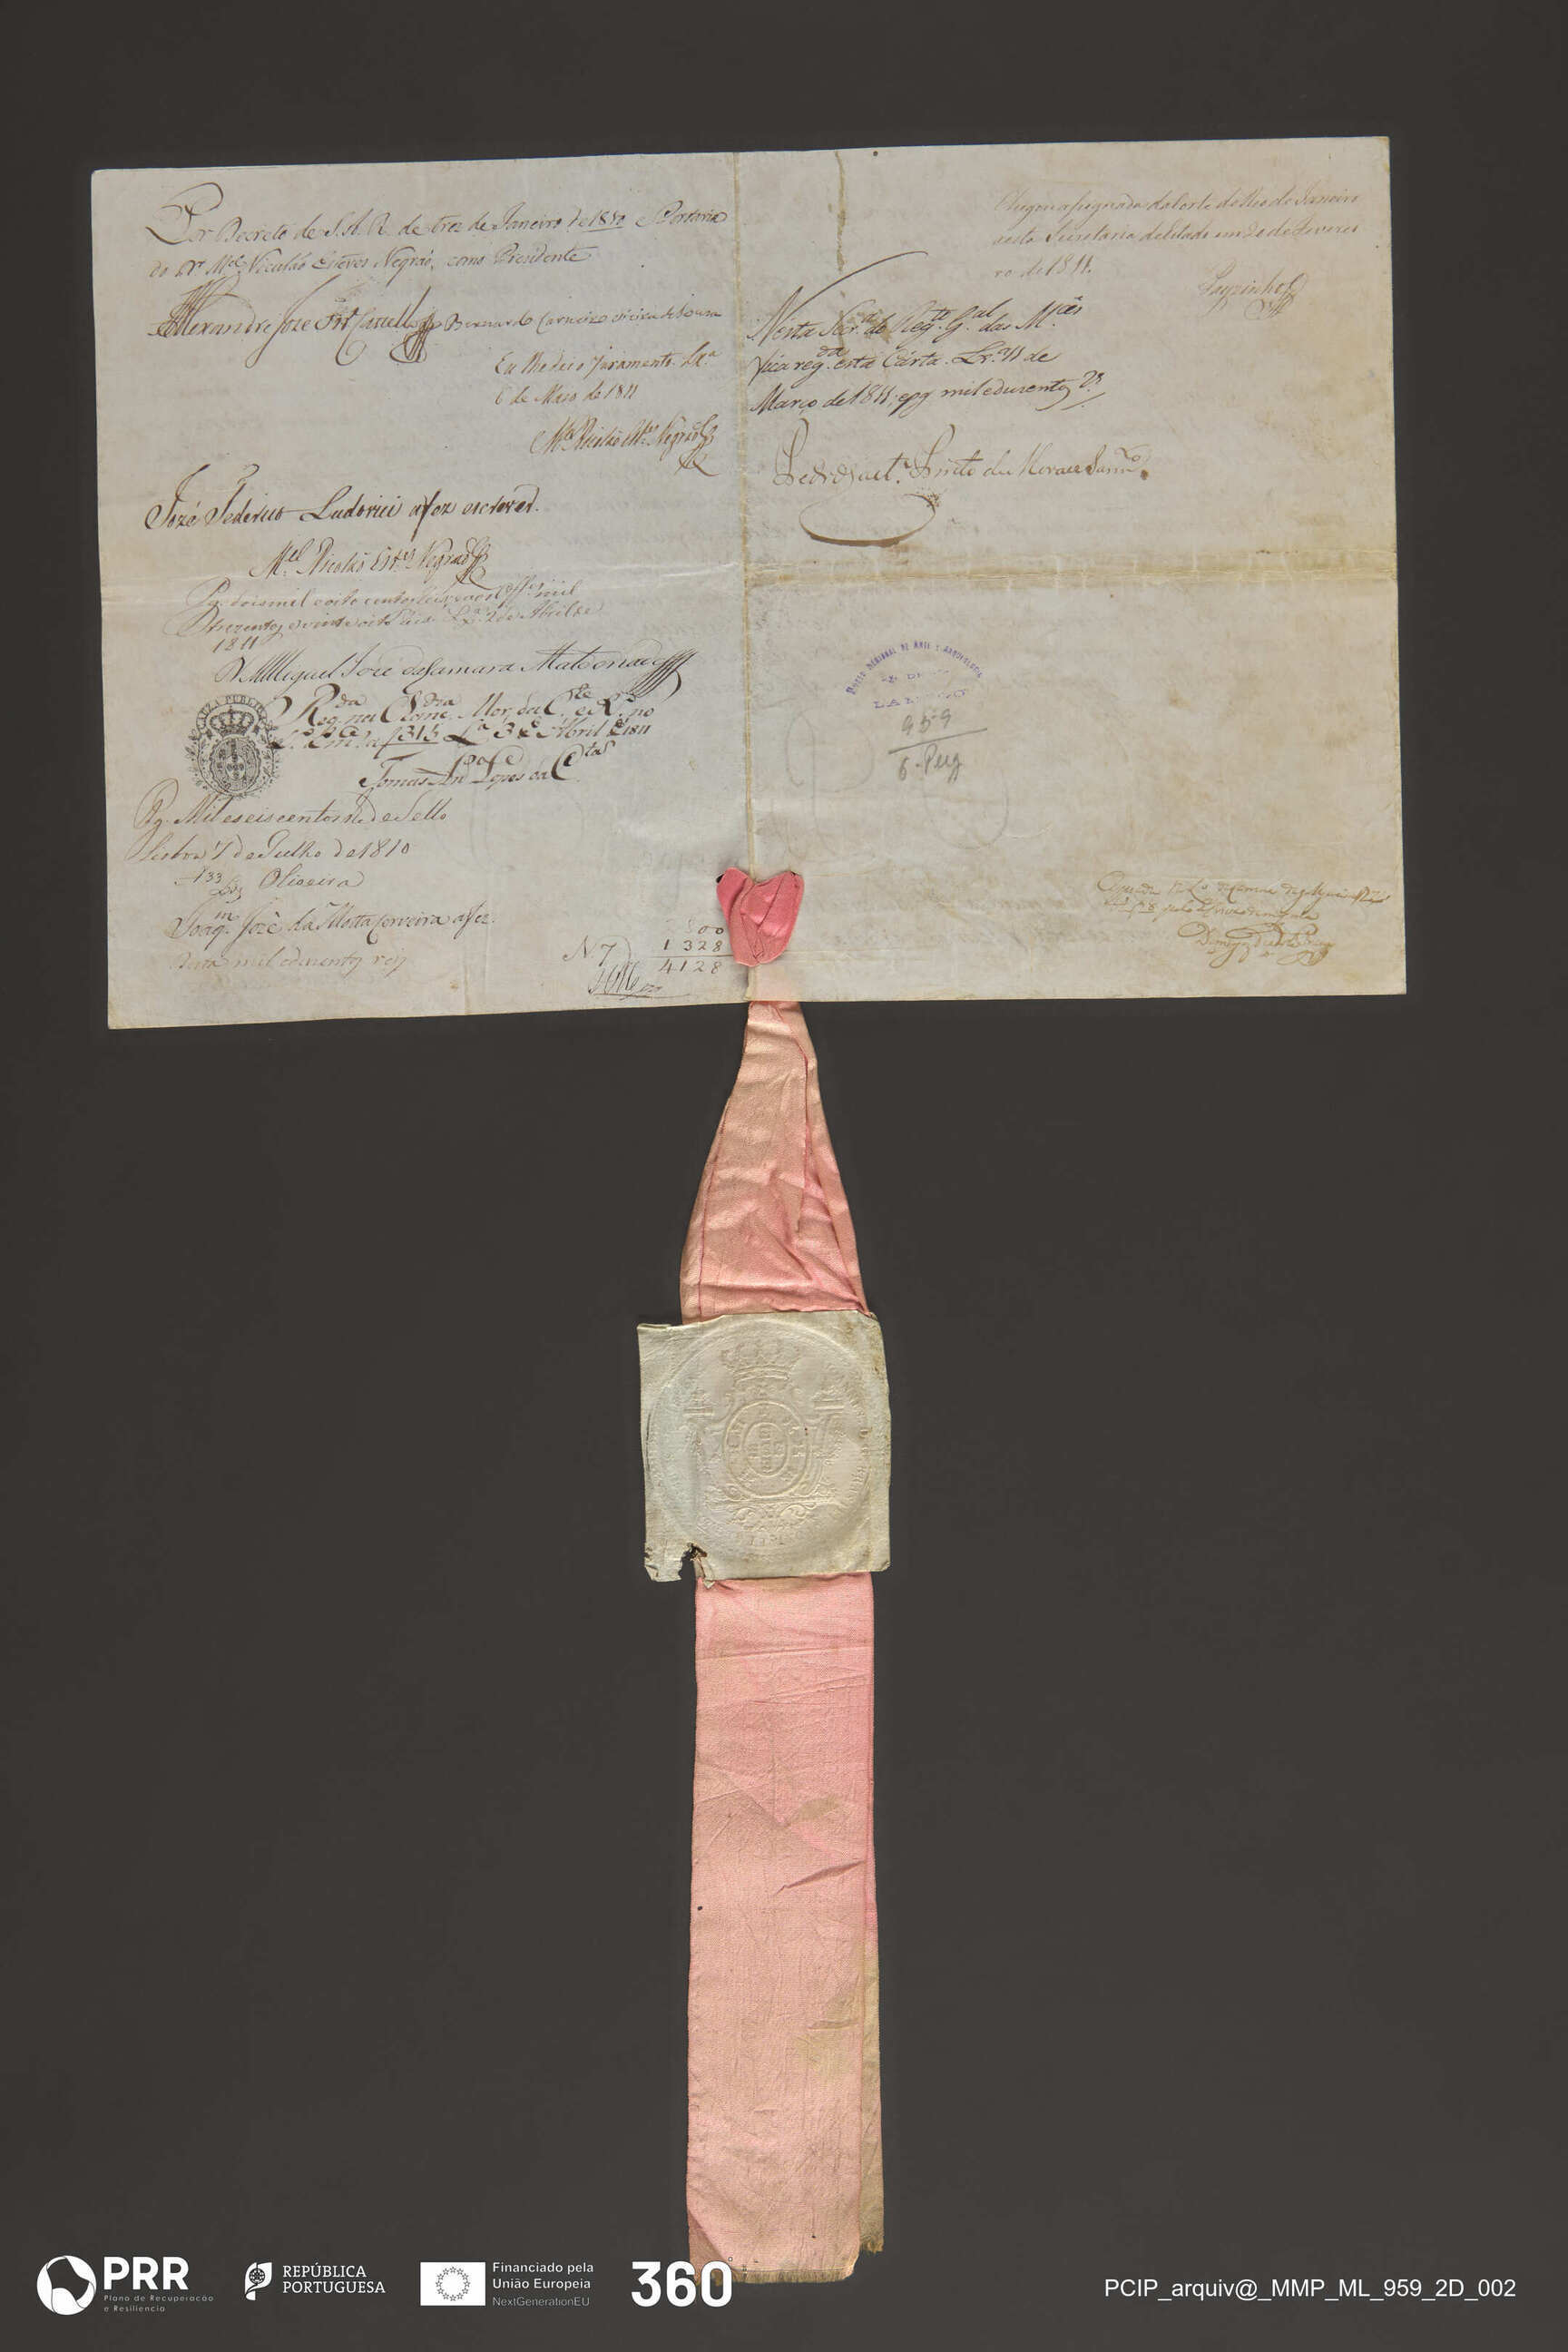 Por Decreto de S. A. R. de trez de Janeiro de 1810 e Portaria
do Dr. Mel. Nicoláo Esteves Negraõ, como Prezidente
Alexandre Joze Castello Bernardo Carneiro Vieira de Sousa
Eu lhe dei o juramento. Lxa.
6 de Maio de 1811
Mel. Nicoláo Estes. Negraõ
Jozé Federico Ludovici a fez escrever.
Mel. Nicoláo Estes. Negraõ
Pg. dois mil e oito centos reis e aos Offes. mil
trezentos e vinte oito reis. Lxa. 2 de Abril de
1811
D. Miguel Jozé da Camara Maldonado
CAUZA PUBLICA
Regda. na Chancra. Mór da Cte. e Rno. no
f 315 Lxa. 3 de Abril de 1811
Tomas Anto. Lopes da Cta.
Pg. Mil e seiscentos rs. de Sello
Lisboa 7 de Julho de 1810
133 Oliveira
Joaqm. José da Motta Cerveira a fez.
mil e duzentos reis
N. 7
800
1328
4128
Chegou assignada da Corte do Rio de Janeiro
nesta Secretaria de Estado em 20 de Feverei
ro de 1811.
Nesta Secra. do Regto. Gal. das Mces.
fica regda. esta Carta. Lxa. 11 de
Março de 1811, e pg mil e duzentos rs.
Pinto de Moraes Sarmto.
MUSEU REGIONAL DE ARTE E ARQUEOLOGIA
LAMEGO
959
6. Perg
PRR
Plano de Recuperação
e Resiliência
REPÚBLICA
PORTUGUESA
Financiado pela
União Europeia
NextGenerationEU
360°
PCIP_arquiv@_MMP_ML_959_2D_002